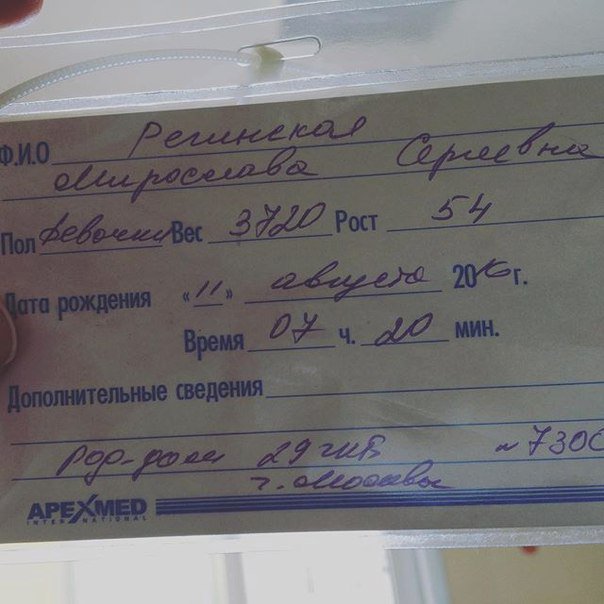 Ф.И.О Регинская
Мирослава Сергеевна
Пол девочка Вес 3720 Рост 54
Дата рождения «11» августа 2016г.
Время 07 ч. 20 мин.
Дополнительные сведения
Род-дом 29 ГКБ №730
г. Москвы
APEXMED
INTERNATIONAL